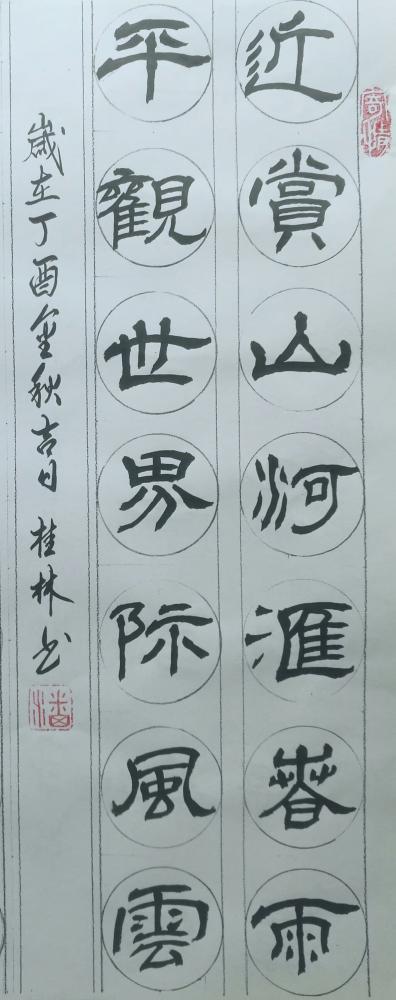 近賞山河滙春雨
平觀世界际風雲
歲在丁酉金秋吉日 桂林书